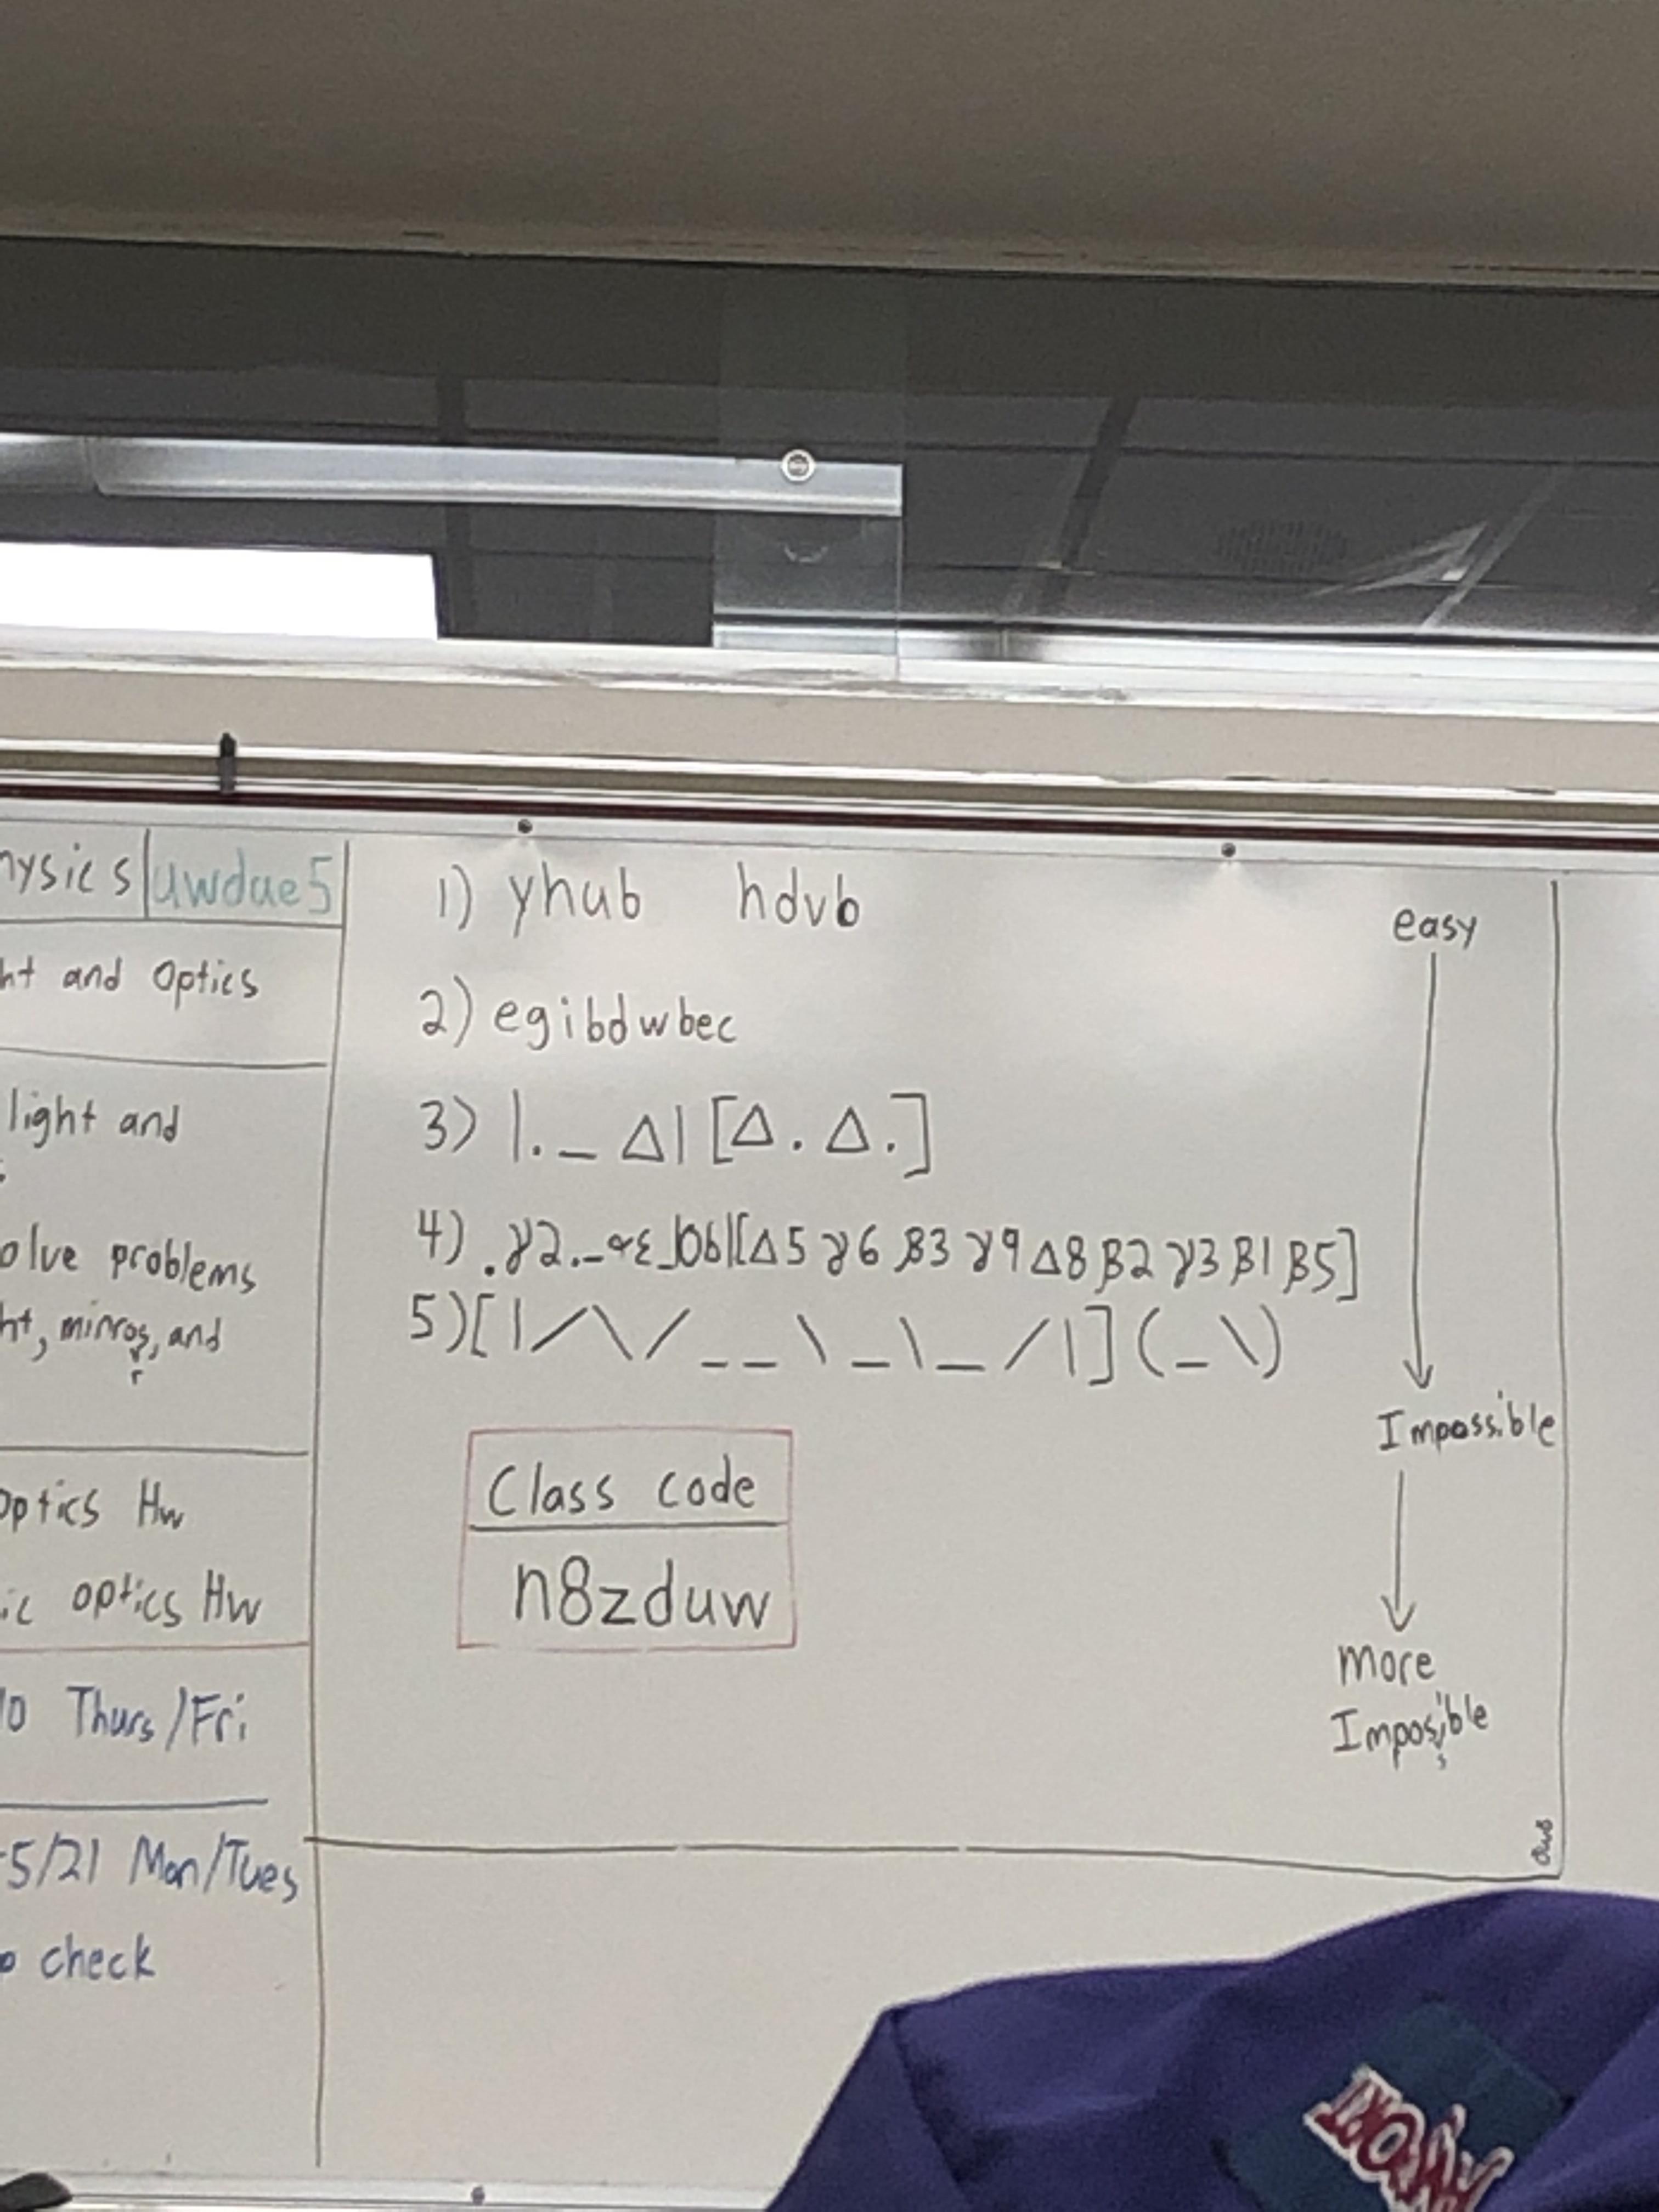 hysics uwdue5
ht and Optics
light and
olve problems
ht, mirros, and
r
Optics Hw
ic optics Hw
10 Thurs/Fri
-5/21 Mon/Tues
check
1) yhub hdvb
2) egibdwbec
3) |._ Δ| [Δ. Δ.]
4) .γ2._αε_|061|[Δ5 γ6 β3 γ9 Δ8 β2 γ3 β1 β5]
5) [|/\/__\_\_/|](_\)
Class code
n8zduw
easy
Impossible
more
Imposible
s